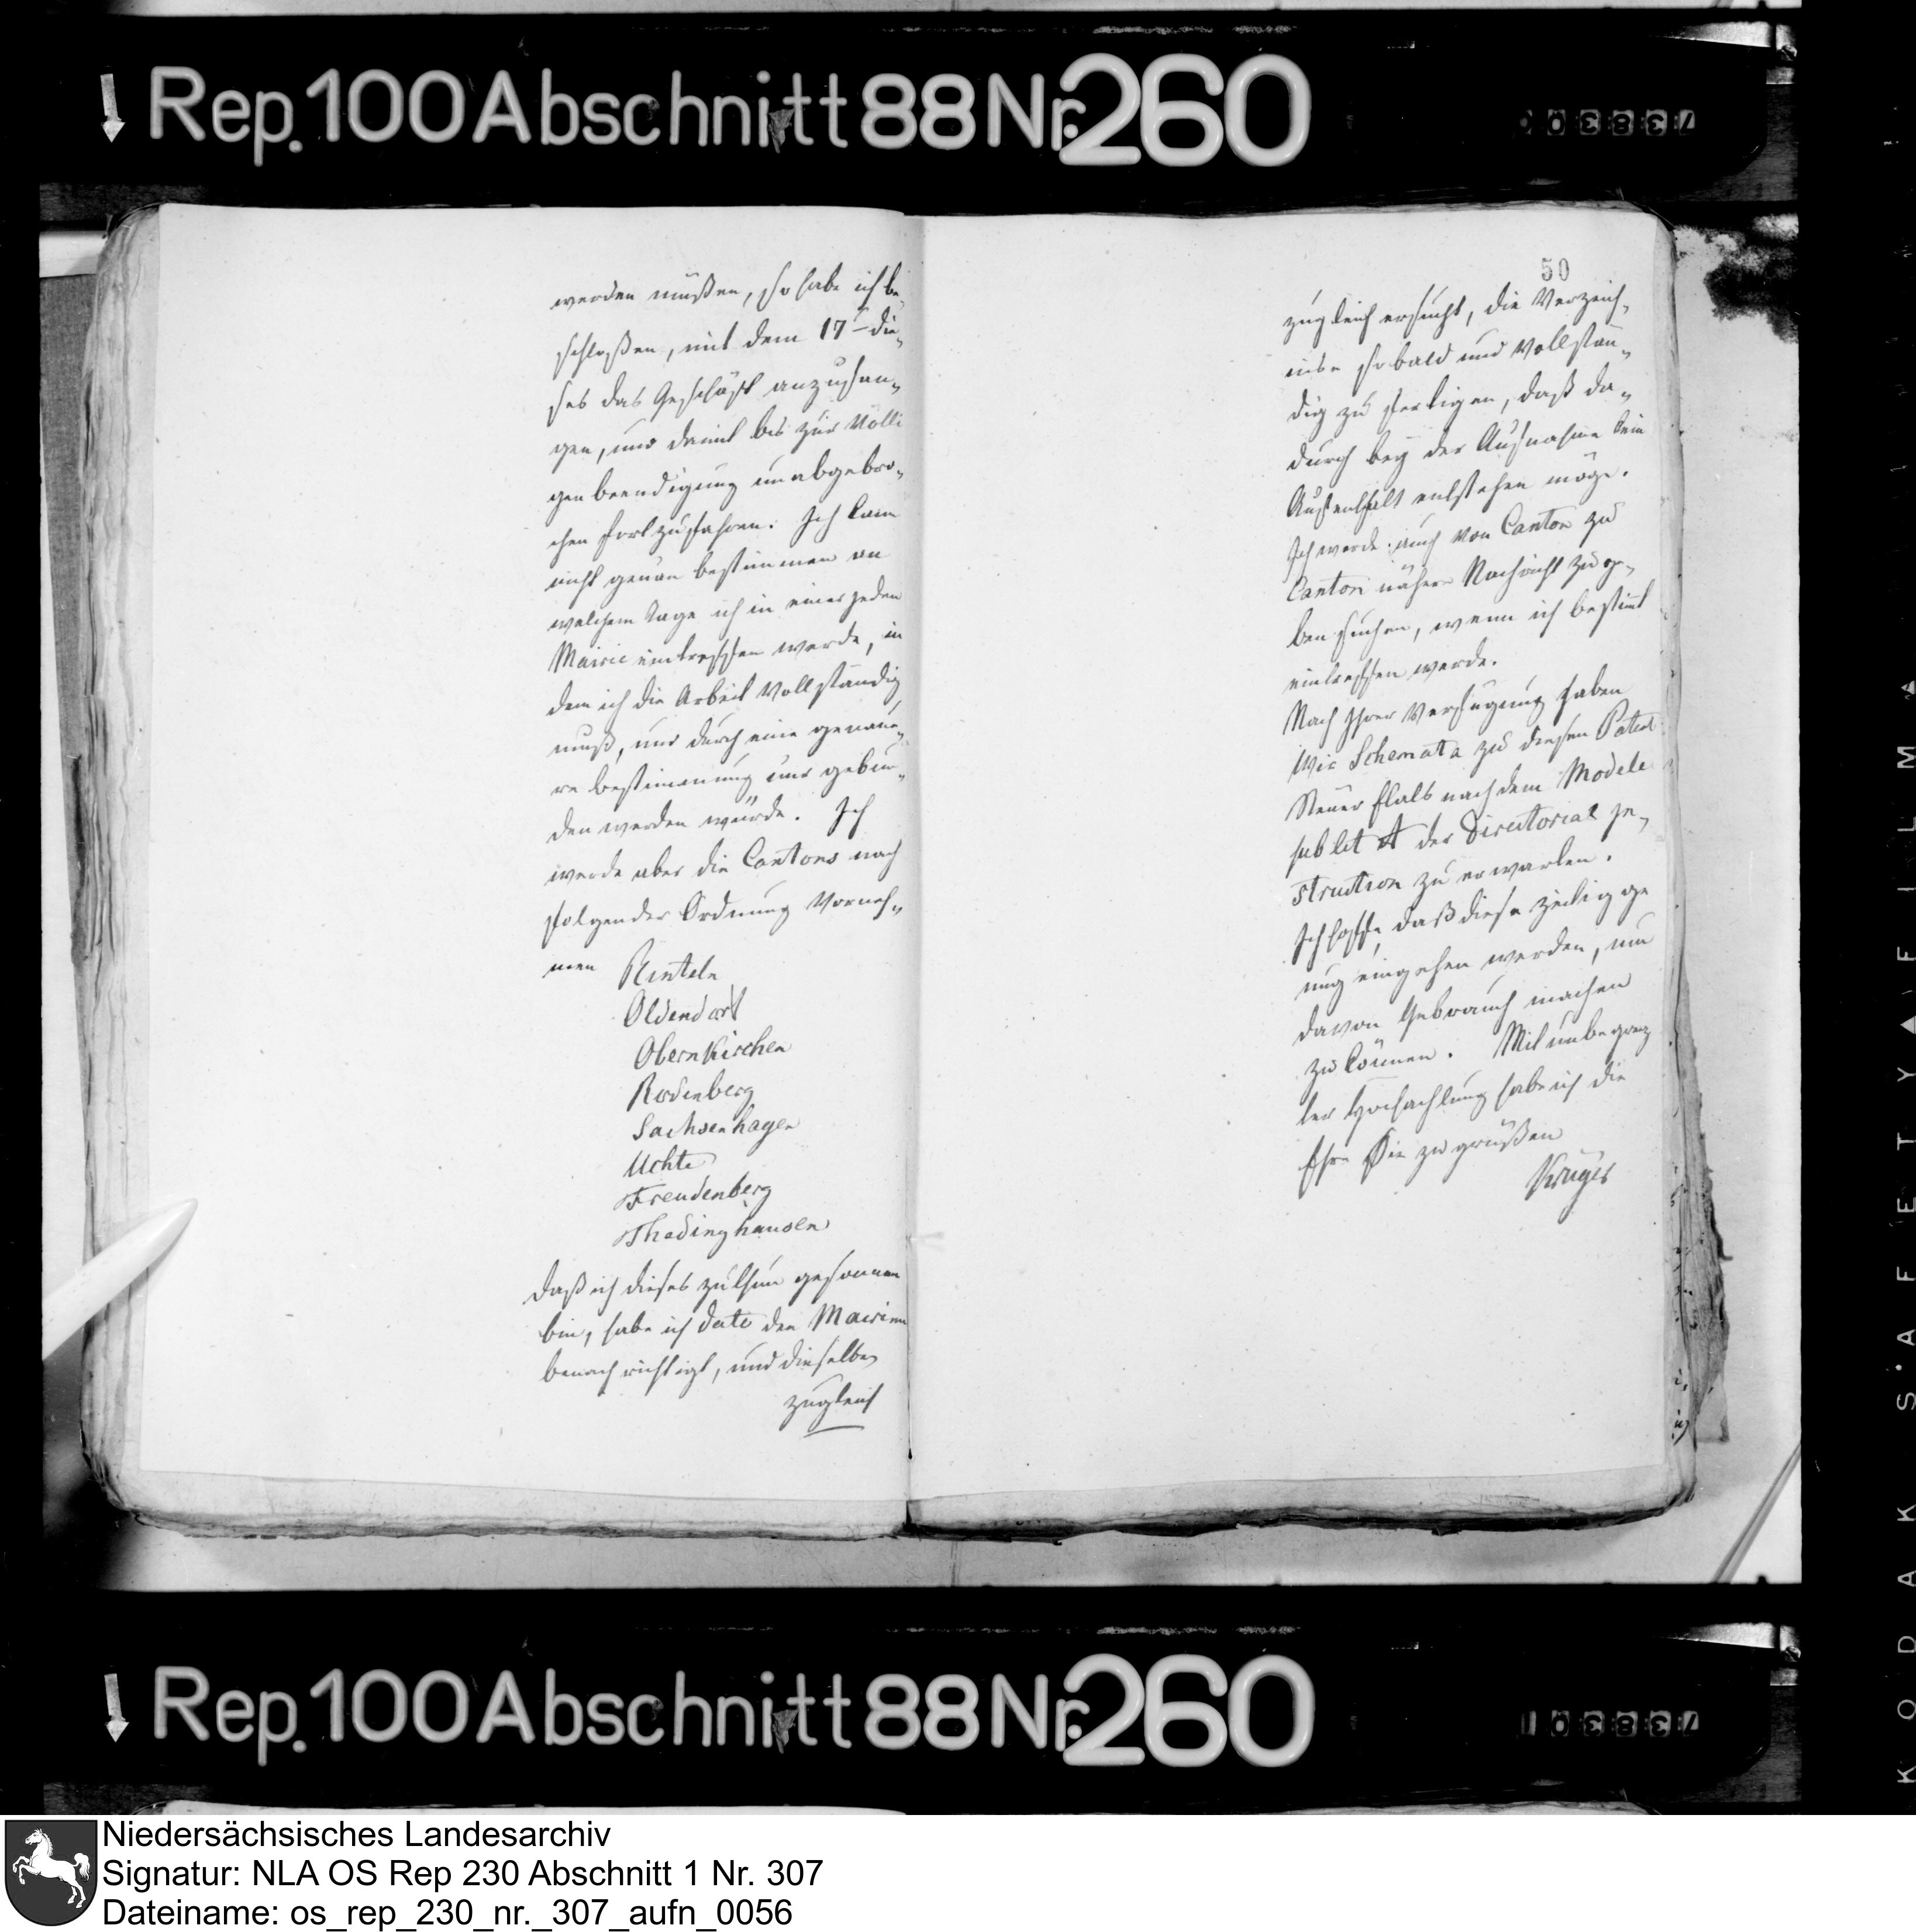 Rep. 100 Abschnitt 88 Nr. 260
werden müßen, so habe ich be-
schloßen, mit dem 17t die-
ses das Geschäft anzufan-
gen, und damit bis zur Völli
gen beendigung unabgebro-
chen fortzufahren. Ich kann
nicht genau bestimmen an
welchem Tage ich in einer jeden
Mairie eintreffen werde, in
dem ich die Arbeit Vollständig
muß, und durch eine genaue-
re bestimmung nur gebun-
den werden würde. Ich
werde aber die Cantons nach
folgender Ordnung Vorneh-
men Rinteln
Oldendorf
Obernkirchen
Rodenberg
Sachsenhagen
Uchte
Freudenberg
Thedinghausen
Daß ich dieses zu thun gesonnen
bin, habe ich dato den Mairien
benachrichtigt, und dieselben
zugleich
50
zugleich ersucht, die Verzeich-
niße so bald und Vollstän-
dig zu fertigen, daß da-
durch bey der Aufnahme kein
Aufenthalt entstehen möge.
Ich werde auch von Canton zu
Canton nähere Nachricht zu ge-
ben suchen, wenn ich bestimt
eintreffen werde.
Nach Ihrer Verfügung haben
Wir Schemata zu diesen Patent
Steuer Etats nach dem Modele
sub lit A der Directorial In-
struction zu erwarten.
Ich hoffe, daß diese zeitig ge
nug eingehen werden, um
davon Gebrauch machen
zu können. Mit unbegrenz
ter Hochachtung habe ich die
Ehre Sie zu grüßen
Krüger
Rep. 100 Abschnitt 88 Nr. 260
KODAK SAFETY FILM
Niedersächsisches Landesarchiv
Signatur: NLA OS Rep 230 Abschnitt 1 Nr. 307
Dateiname: os_rep_230_nr._307_aufn_0056